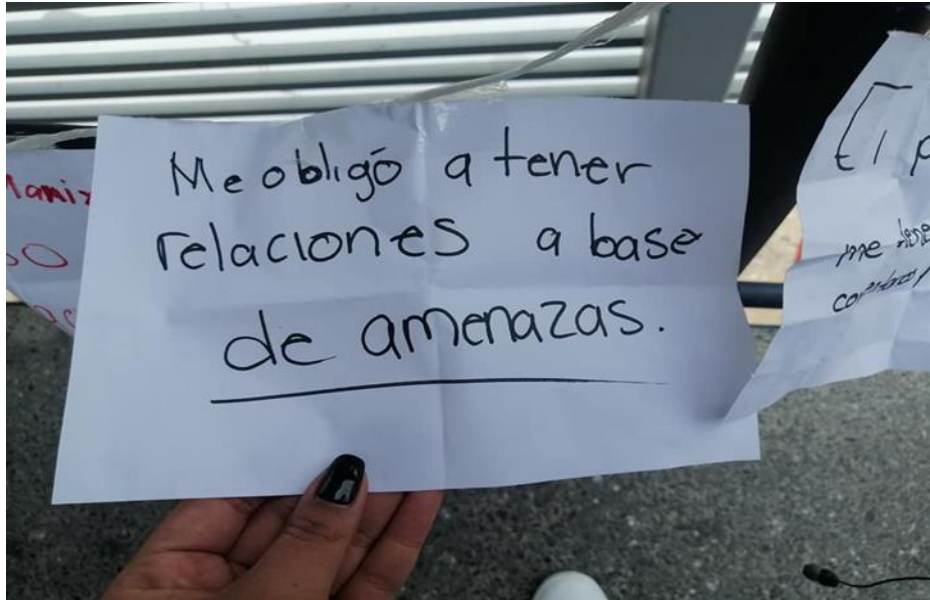 Me obligó a tener
relaciones a base
de amenazas.
El
me